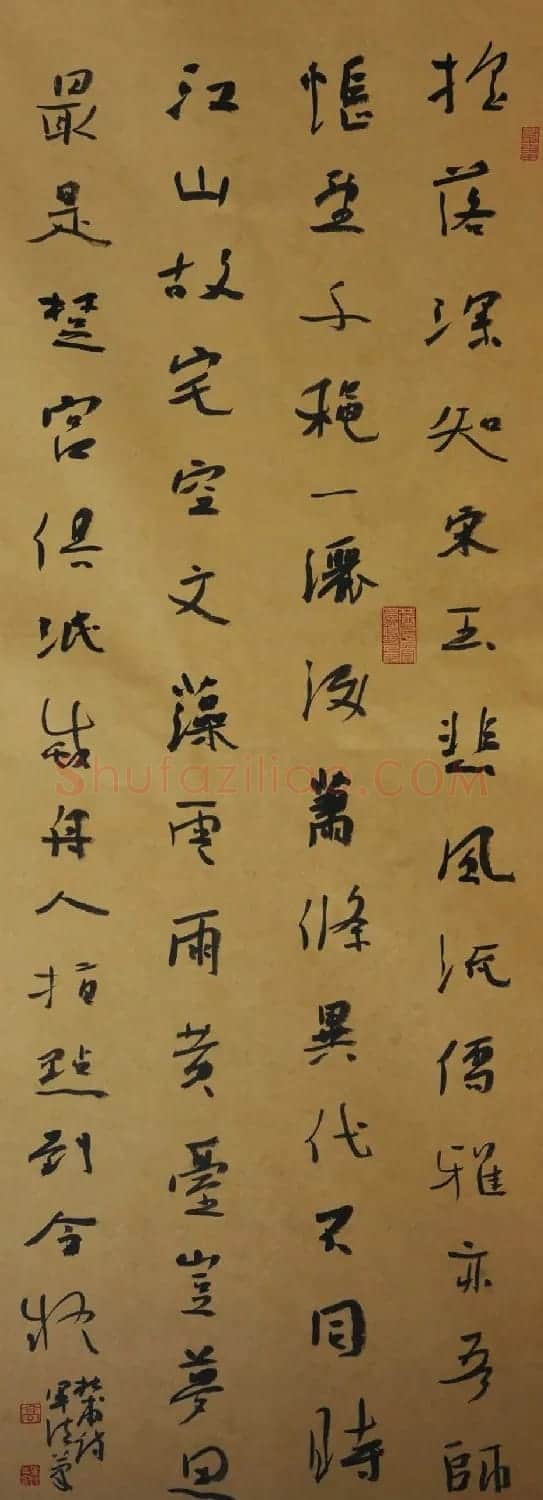 搖落深知宋玉悲風流儒雅亦吾師
悵望千穐一灑淚蕭條異代不同時
江山故宅空文藻雲雨荒臺豈夢思
最是楚宮俱泯滅舟人指點到今疑
杜甫詩
Shufaziliao.COM